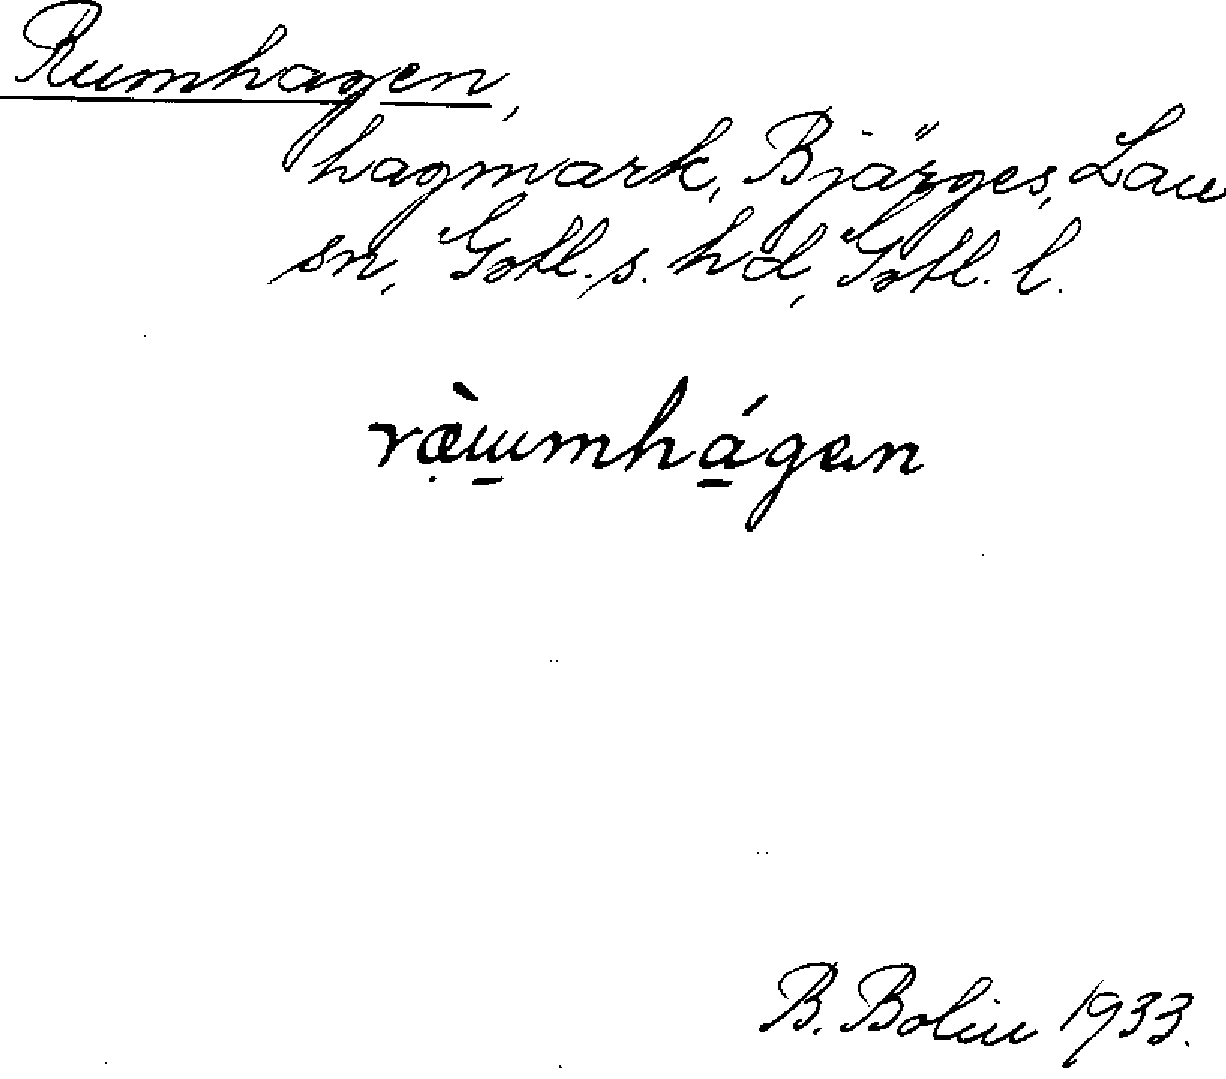 Rumhagen,
hagmark, Bjärges, Lau
sn, Gotl. s. hd, Gotl. l.
ræ̣̀u̠mhá̠gen
B. Bolin 1933.